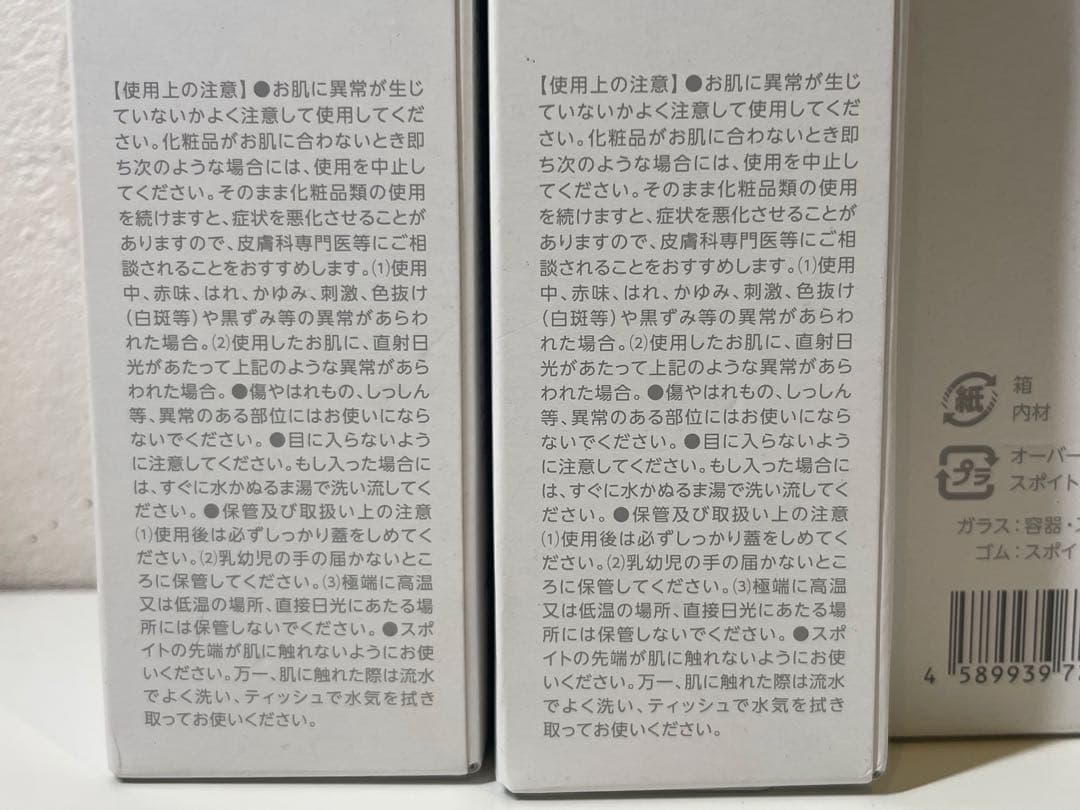 【使用上の注意】●お肌に異常が生じ
ていないかよく注意して使用してくだ
さい。化粧品がお肌に合わないとき即
ち次のような場合には、使用を中止し
てください。そのまま化粧品類の使用
を続けますと、症状を悪化させることが
ありますので、皮膚科専門医等にご相
談されることをおすすめします。(1)使用
中、赤味、はれ、かゆみ、刺激、色抜け
(白斑等)や黒ずみ等の異常があらわ
れた場合。(2)使用したお肌に、直射日
光があたって上記のような異常があら
われた場合。●傷やはれもの、しっしん
等、異常のある部位にはお使いになら
ないでください。●目に入らないよう
に注意してください。もし入った場合に
は、すぐに水かぬるま湯で洗い流してく
ださい。●保管及び取扱い上の注意
(1)使用後は必ずしっかり蓋をしめてく
ださい。(2)乳幼児の手の届かないとこ
ろに保管してください。(3)極端に高温
又は低温の場所、直接日光にあたる場
所には保管しないでください。●スポ
イトの先端が肌に触れないようにお使
いください。万一、肌に触れた際は流水
でよく洗い、ティッシュで水気を拭き
取ってお使いください。
【使用上の注意】●お肌に異常が生じ
ていないかよく注意して使用してくだ
さい。化粧品がお肌に合わないとき即
ち次のような場合には、使用を中止し
てください。そのまま化粧品類の使用
を続けますと、症状を悪化させることが
ありますので、皮膚科専門医等にご相
談されることをおすすめします。(1)使用
中、赤味、はれ、かゆみ、刺激、色抜け
(白斑等)や黒ずみ等の異常があらわ
れた場合。(2)使用したお肌に、直射日
光があたって上記のような異常があら
われた場合。●傷やはれもの、しっしん
等、異常のある部位にはお使いになら
ないでください。●目に入らないよう
に注意してください。もし入った場合に
は、すぐに水かぬるま湯で洗い流してく
ださい。●保管及び取扱い上の注意
(1)使用後は必ずしっかり蓋をしめてく
ださい。(2)乳幼児の手の届かないとこ
ろに保管してください。(3)極端に高温
又は低温の場所、直接日光にあたる場
所には保管しないでください。●スポ
イトの先端が肌に触れないようにお使
いください。万一、肌に触れた際は流水
でよく洗い、ティッシュで水気を拭き
取ってお使いください。
紙
箱
内材
プラ
オーバー
スポイト
ガラス:容器・
ゴム:スポイ
4 589939 7